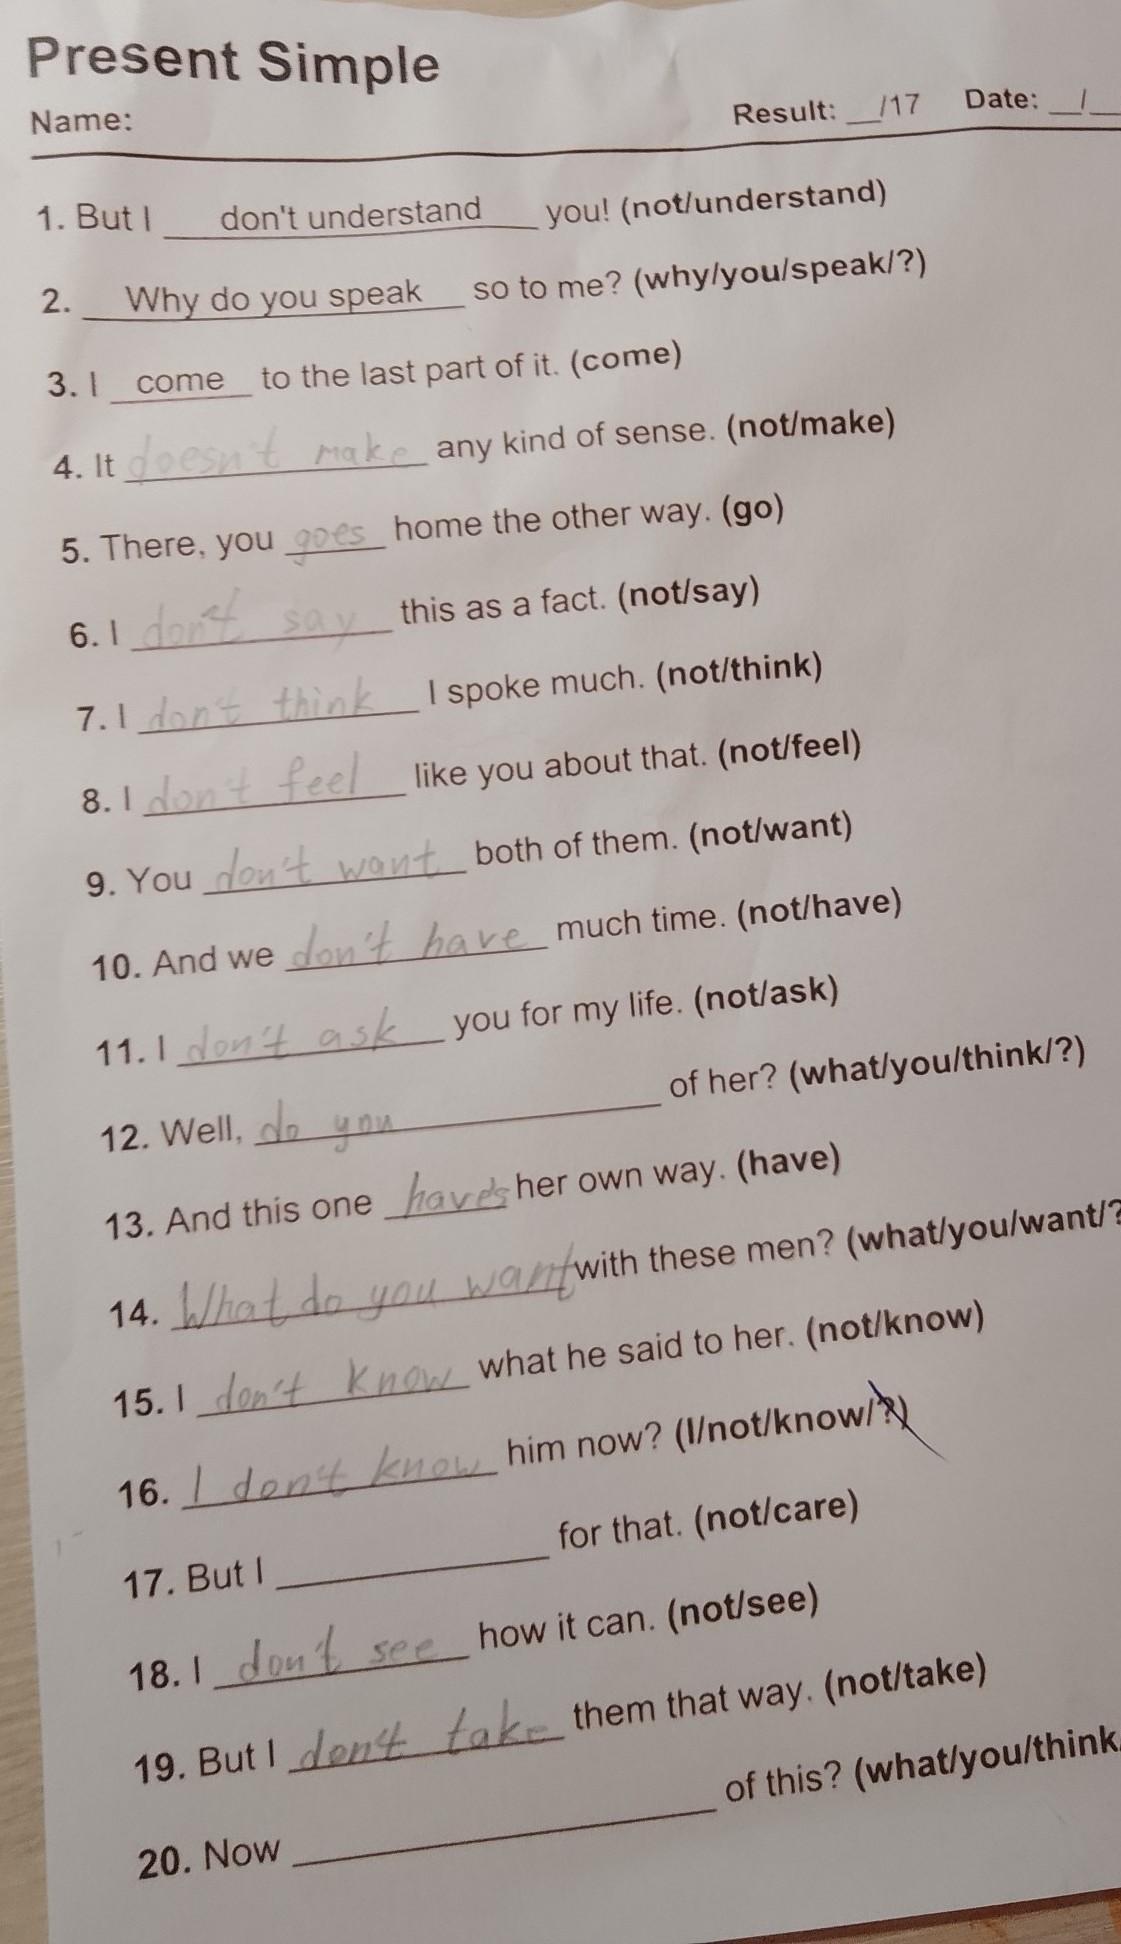 Present Simple
Name: Result: __/17 Date: __/__
1. But I don't understand you! (not/understand)
2. Why do you speak so to me? (why/you/speak/?)
3. I come to the last part of it. (come)
4. It doesn't make any kind of sense. (not/make)
5. There, you goes home the other way. (go)
6. I don't say this as a fact. (not/say)
7. I don't think I spoke much. (not/think)
8. I don't feel like you about that. (not/feel)
9. You don't want both of them. (not/want)
10. And we don't have much time. (not/have)
11. I don't ask you for my life. (not/ask)
12. Well, do you of her? (what/you/think/?)
13. And this one haves her own way. (have)
14. What do you want with these men? (what/you/want/?
15. I don't know what he said to her. (not/know)
16. I don't know him now? (I/not/know/?)
17. But I ____ for that. (not/care)
18. I don't see how it can. (not/see)
19. But I don't take them that way. (not/take)
20. Now ____ of this? (what/you/think